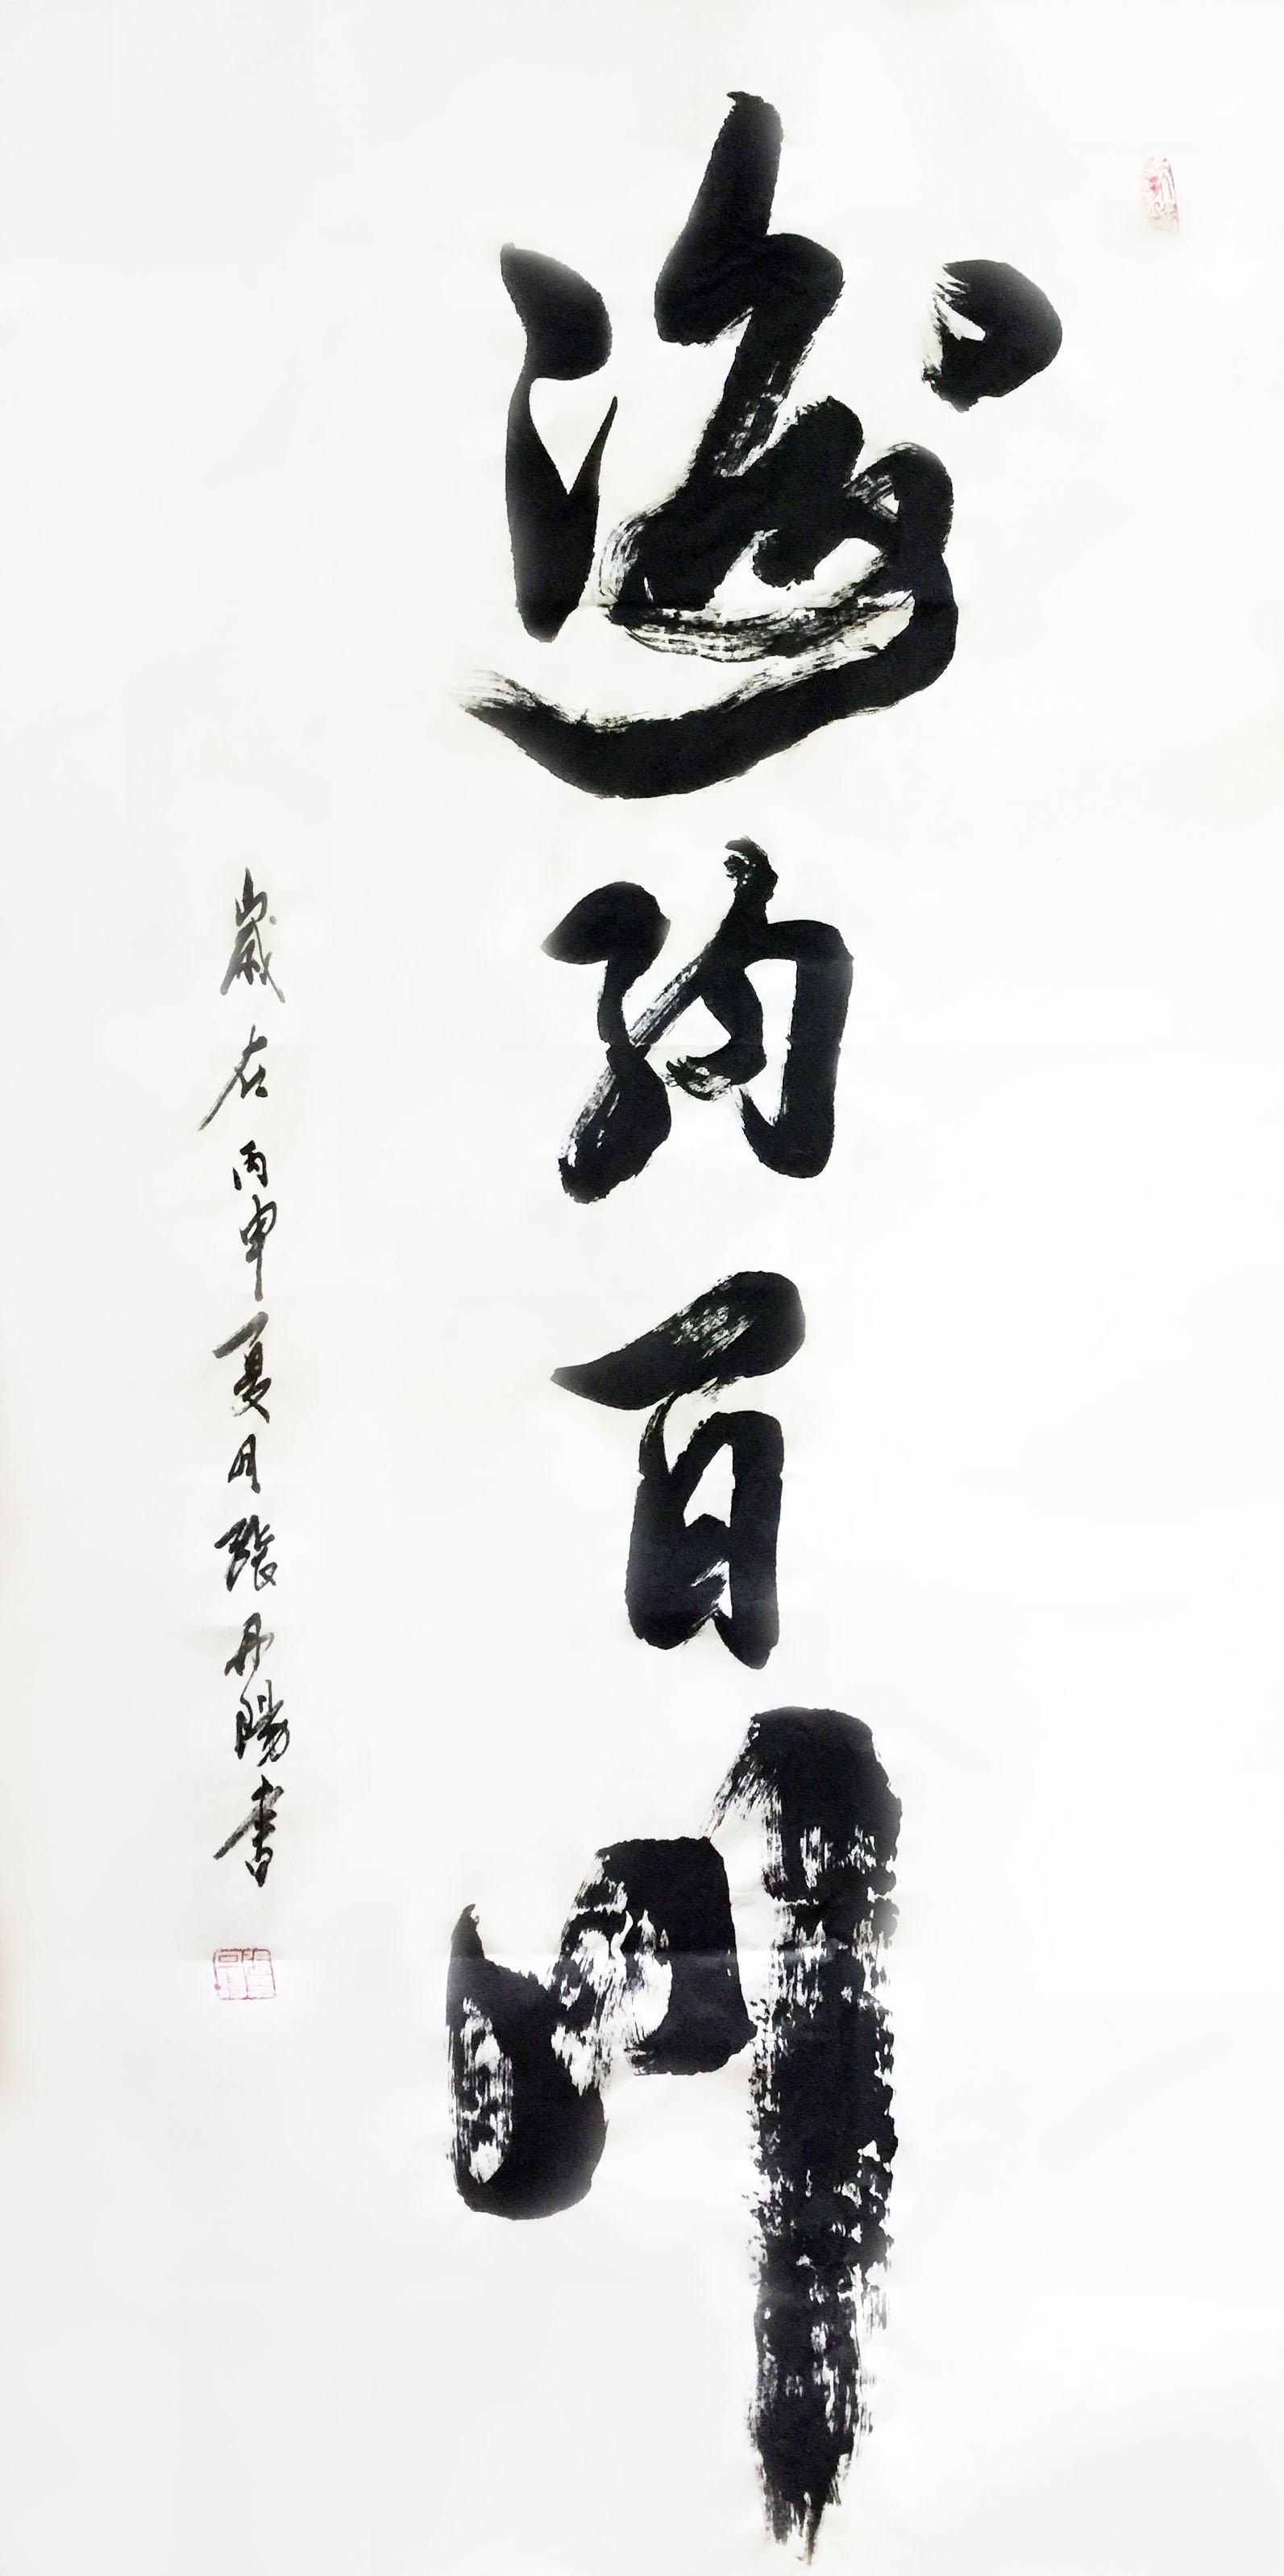 海納百川
歲在丙申夏月張丹陽書